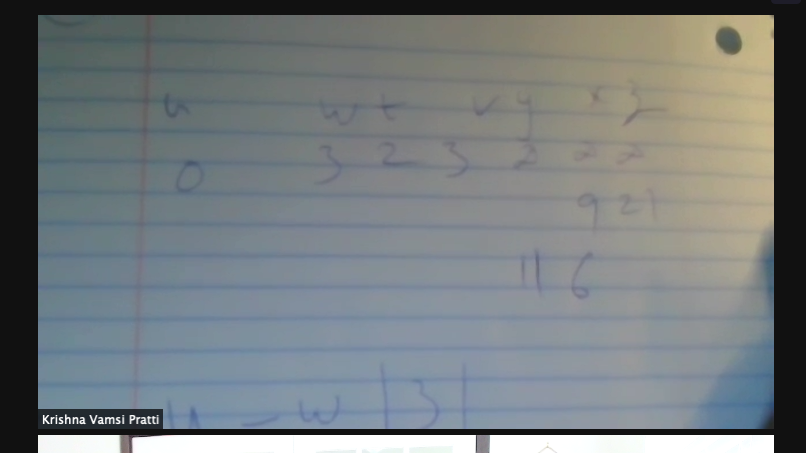 u w t v y x z
0 3 2 3 2 ∞ ∞
9 21
11 6
u - w | 3 |
Krishna Vamsi Pratti